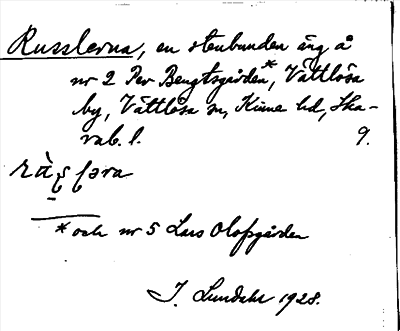 Russlorna, en stenbunden äng å
nr 2 Per Bengtsgården*, Vättlösa
by, Vättlösa sn, Kinne hd, Ska-
rab. l. 9.
* och nr 5 Lars Olofsgården
J. Lundahl 1928.